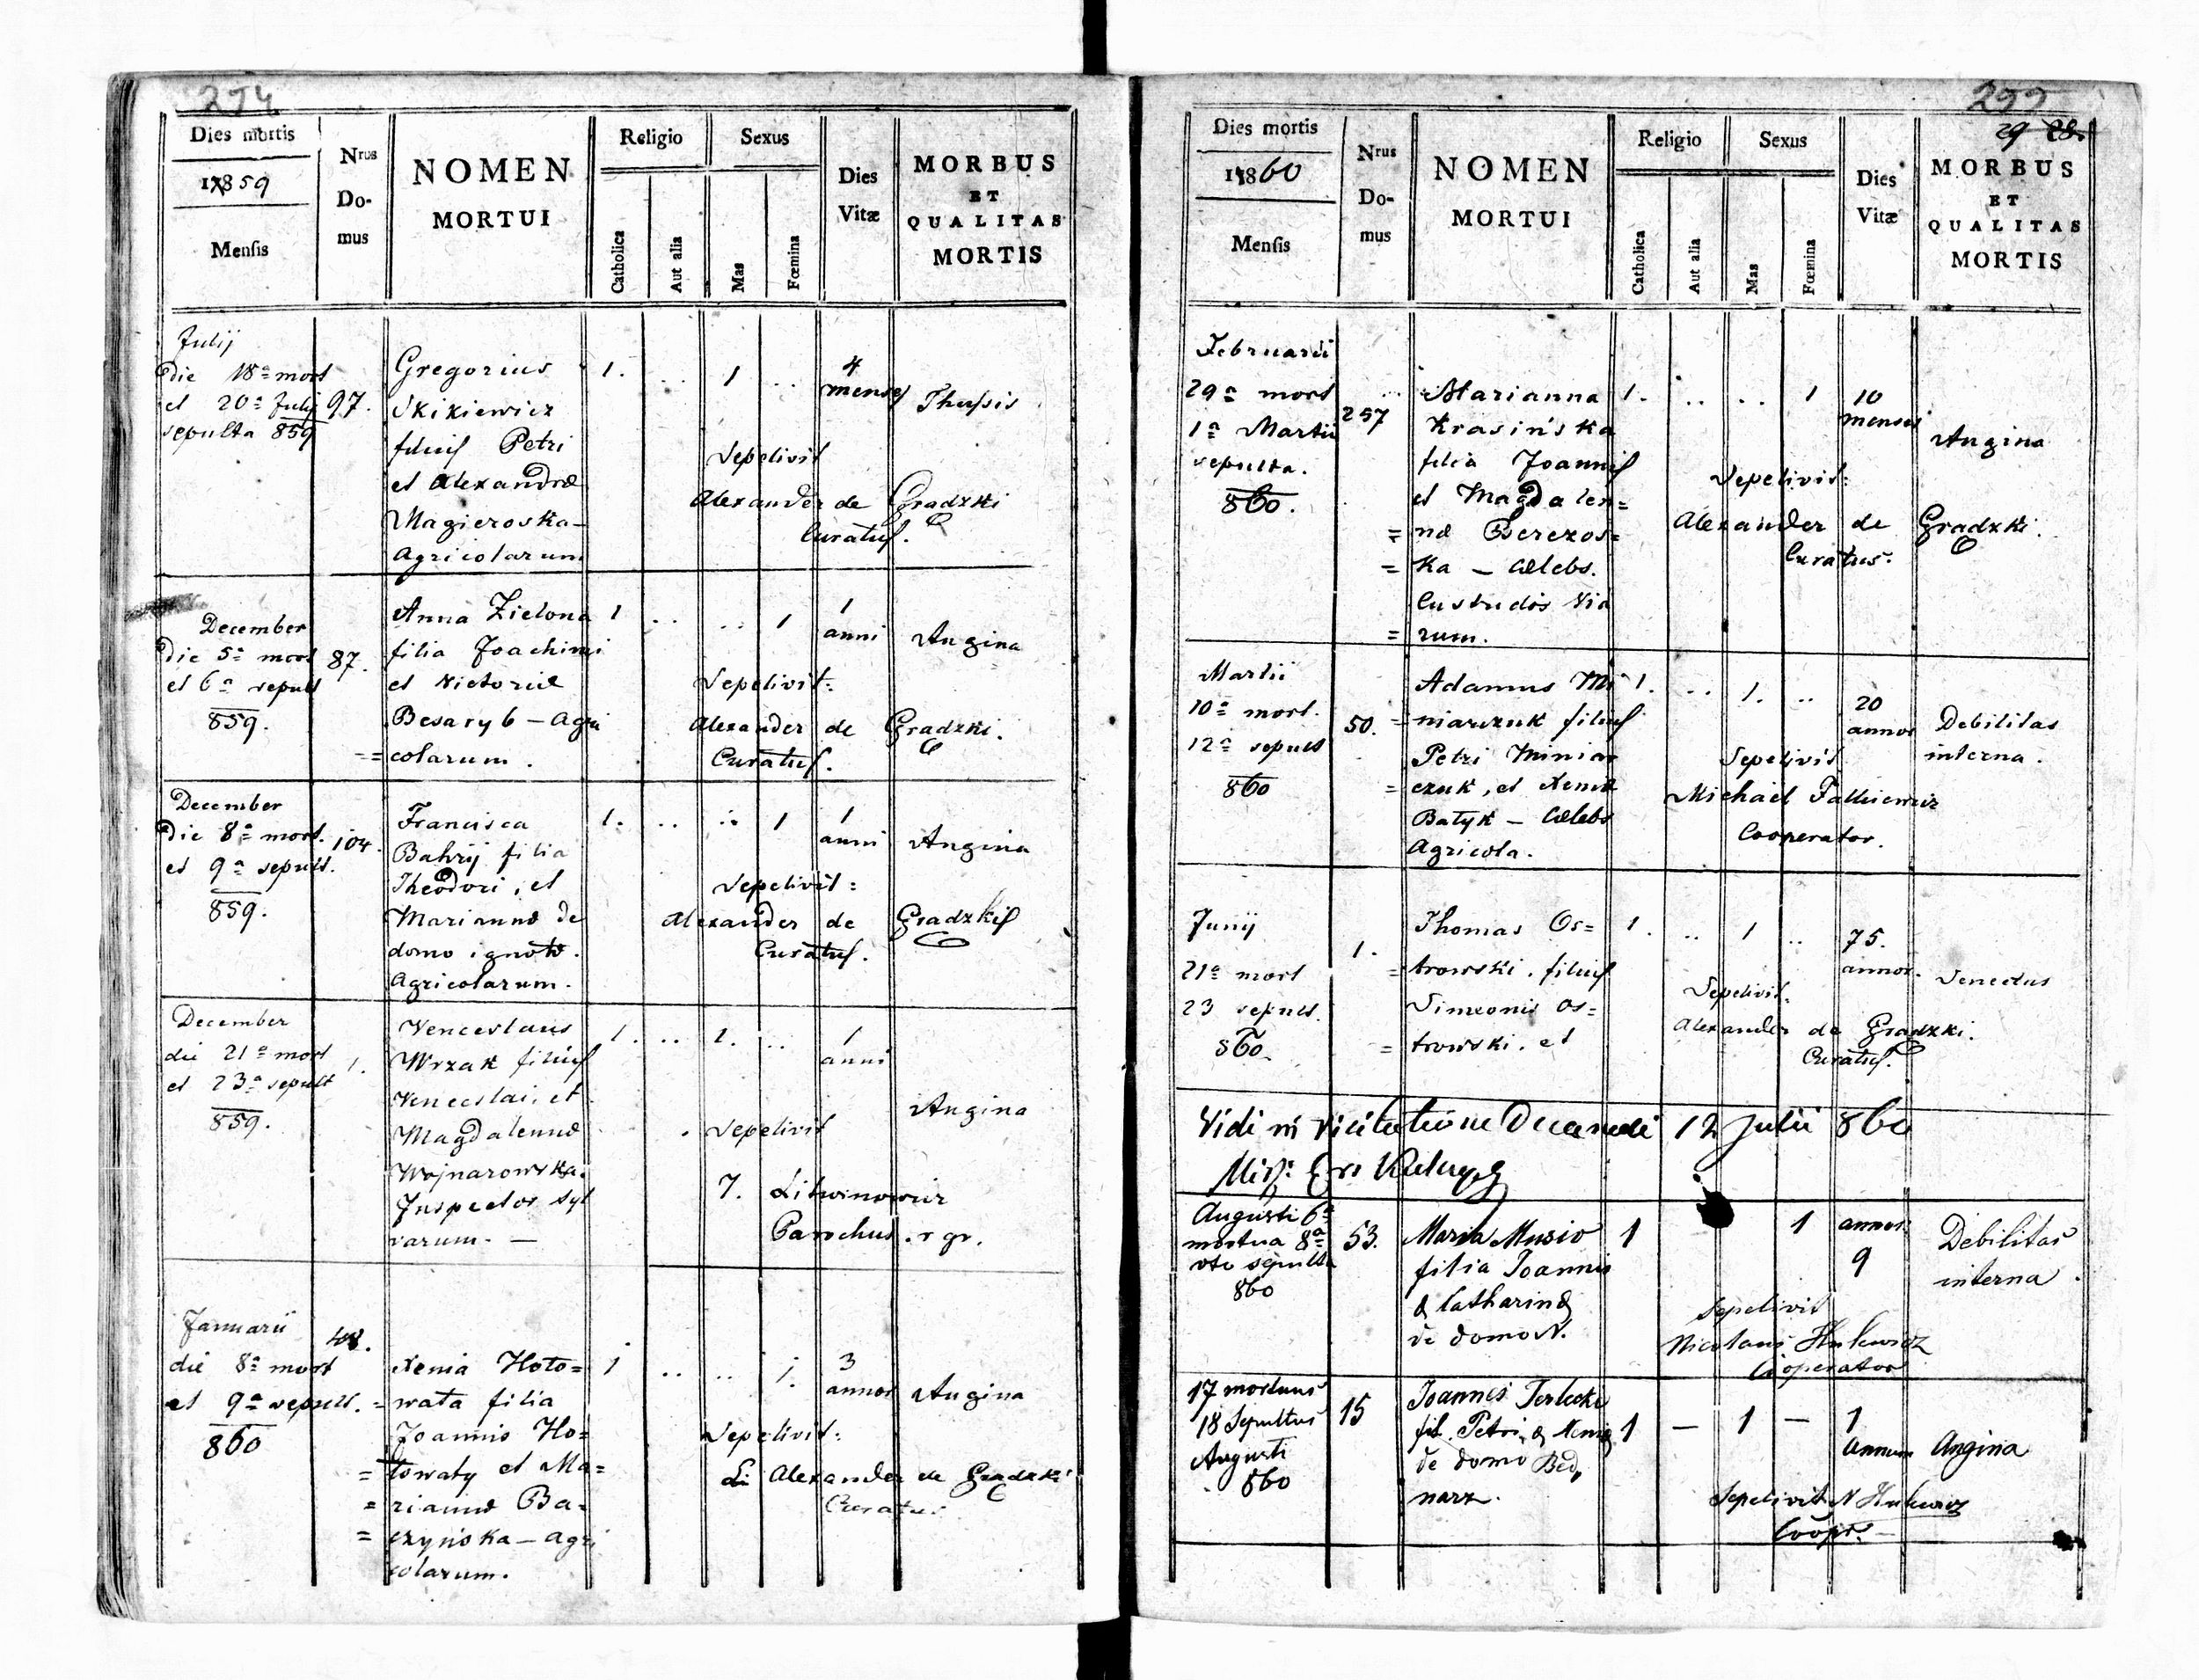 274
Dies mortis
1859
Mensis
Nrus Domus
NOMEN
MORTUI
Religio
Catholica
Aut alia
Sexus
Mas
Fœmina
Dies Vitæ
MORBUS
ET
QUALITAS
MORTIS
Julij
die 18ª mort
et 20ª Julij
sepulta 859
97.
Gregorius
Skikiewicz
filius Petri
et Alexandræ
Magieroska –
Agricolarum
1.
..
1
..
4
menses
Sepelivit
Alexander de Gradzki
Curatus.
December
die 5ª mort
et 6ª sepult
859.
87.
Anna Zielona
filia Joachimi
et Victoriæ
Besaryb – Agri
== colarum.
1
..
..
1
1
anni
Angina
Sepelivit:
Alexander de Gradzki.
Curatus.
December
die 8ª mort.
et 9ª sepult.
859.
104.
Francisca
Bahrij filia
Theodori, et
Mariannæ de
domo ignotæ.
Agricolarum.
1.
..
..
1
1
anni
Angina
Sepelivit:
Alexander de Gradzki
Curatus.
December
die 21ª mort
et 23ª sepult
859.
1.
Venceslaus
Wrzak filius
Venceslai, et
Magdalennæ
Wojnarowska.
Inspector syl
varum. –
1.
..
1.
..
1
anni
Angina
Sepelivit
Litwinowicz
Parochus. r gr.
Januarii
die 8ª mort
et 9ª sepult.
860
48.
Xenia Hoto=
= wata filia
Joannis Ho=
= towaty et Ma=
= riannæ Ba=
= czyńska – Agri
colarum.
1
..
..
1.
3
annor
Angina
Sepelivit:
Alexander de Gradzki
Curatus
29
Dies mortis
1860
Mensis
Nrus Domus
NOMEN
MORTUI
Religio
Catholica
Aut alia
Sexus
Mas
Fœmina
Dies Vitæ
MORBUS
ET
QUALITAS
MORTIS
Februarii
29ª mort
1ª Martii
sepulta.
860.
257
Marianna
Krasińska
filia Joannis
et Magdalen=
= næ Berezos=
= ka – Cælebs.
Custodis Via
= rum.
1.
..
..
1
10
menses
Angina
Sepelivit:
Alexander de Gradzki.
Curatus.
Martii
10ª mort.
12ª sepult
860
50.
Adamus Mi
= niarczuk filius
Petri Miniar
= czuk, et Xeniæ
Batyk – Cælebs
Agricola.
1.
..
1.
..
20
annor
Debilitas
interna.
Sepelivit
Michaël
Cooperator.
Junij
21ª mort
23 sepult.
860.
1.
Thomas Os=
= trowski, filius
Simeonis Os=
= trowski, et
1.
..
1
..
75.
annor.
Senectus
Sepelivit.
Alexander de Gradzki.
Curatus.
Vidi in visitatione Decanali 12 Julii 860
Augusti 6ª
mortua 8ª
sepulta
860
53.
Maria Musio
filia Joannis
& Catharinæ
de domo N.
1
1
annor.
9
Debilitas
interna.
Sepelivit
Nicolaus Hukewicz
Cooperator
17 mortuus
18 Sepultus
Augusti
860
15
Joannes Terlecki
fil. Petri & Xeniæ
de domo Bed,
narz.
1
–
1
–
1
annum
Angina
Sepelivit N Hukewicz
Coopr. –